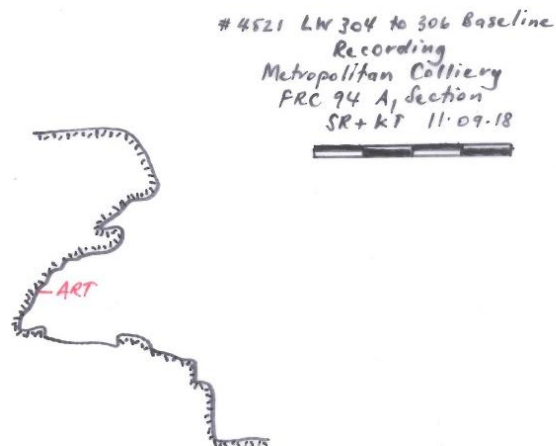 #4521 LW 304 to 306 Baseline
Recording
Metropolitan Colliery
FRC 94 A, Section
SR + KT 11.09.18
ART